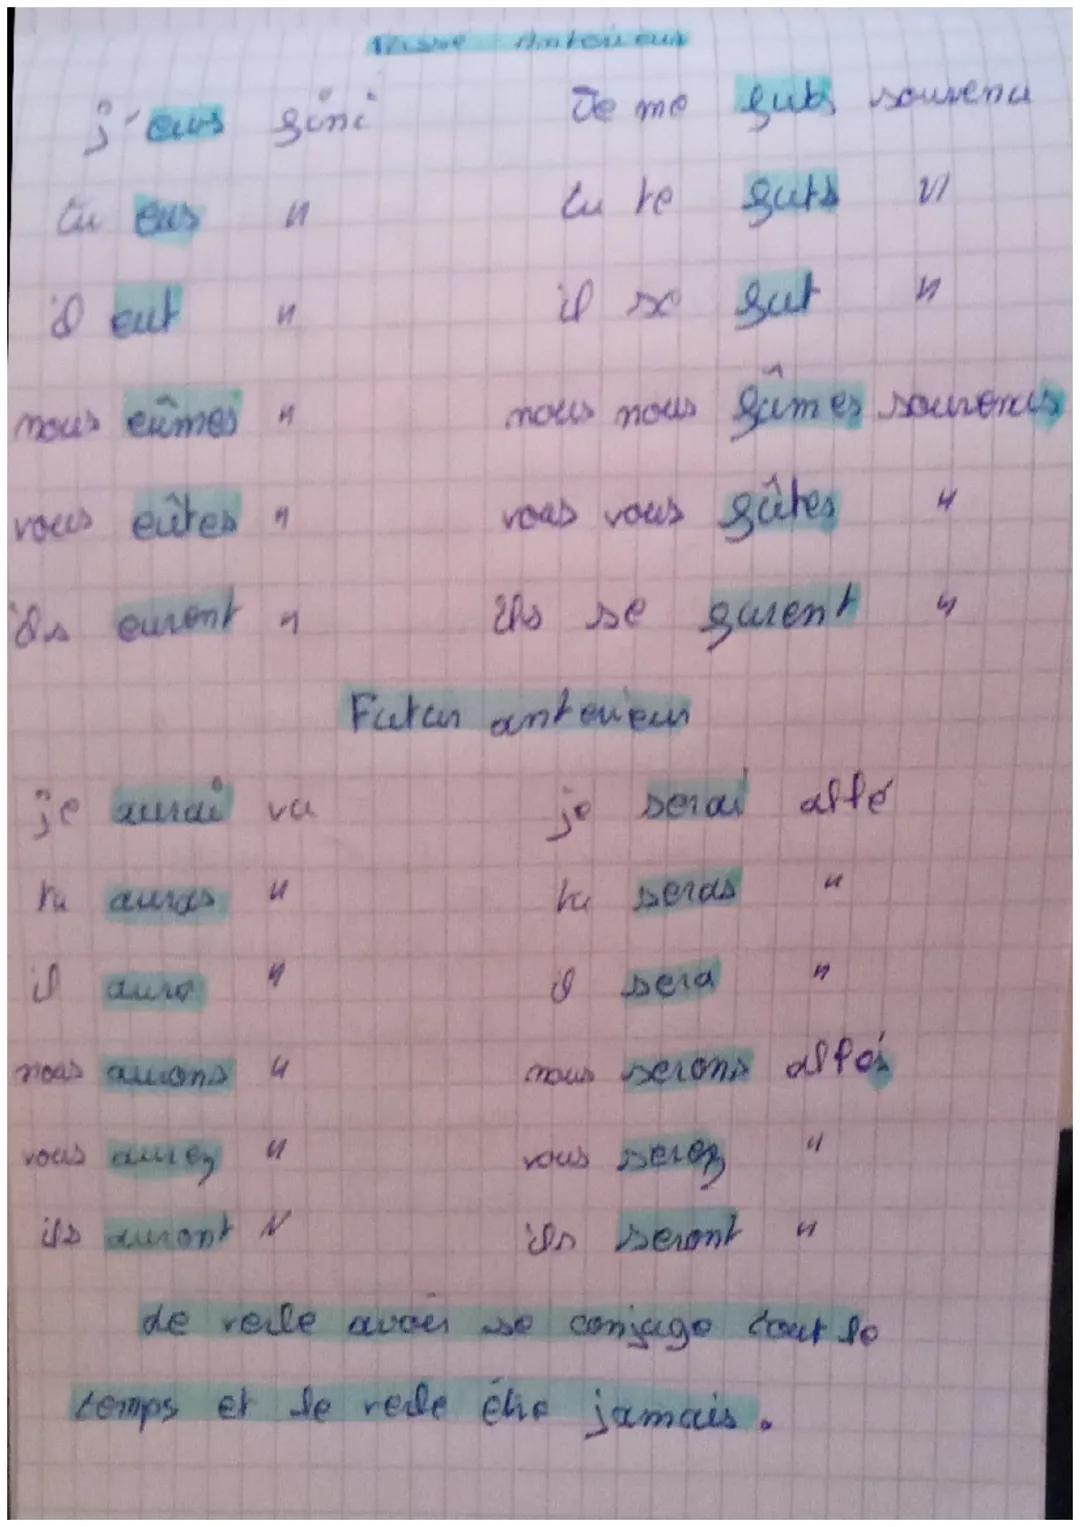 Passé Antérieur
j'eus fini Je me fus souvenu
tu eus " tu te fus "
il eut " il se fut "
nous eûmes " nous nous fûmes souvenus
vous eûtes " vous vous fûtes "
ils eurent " ils se furent "
Futur antérieur
je aurai vu je serai allé
tu auras " tu seras "
il aura " il sera "
nous aurons " nous serons allés
vous aurez " vous serez "
ils auront " ils seront "
avoir se conjugue tout le
temps et le être jamais.